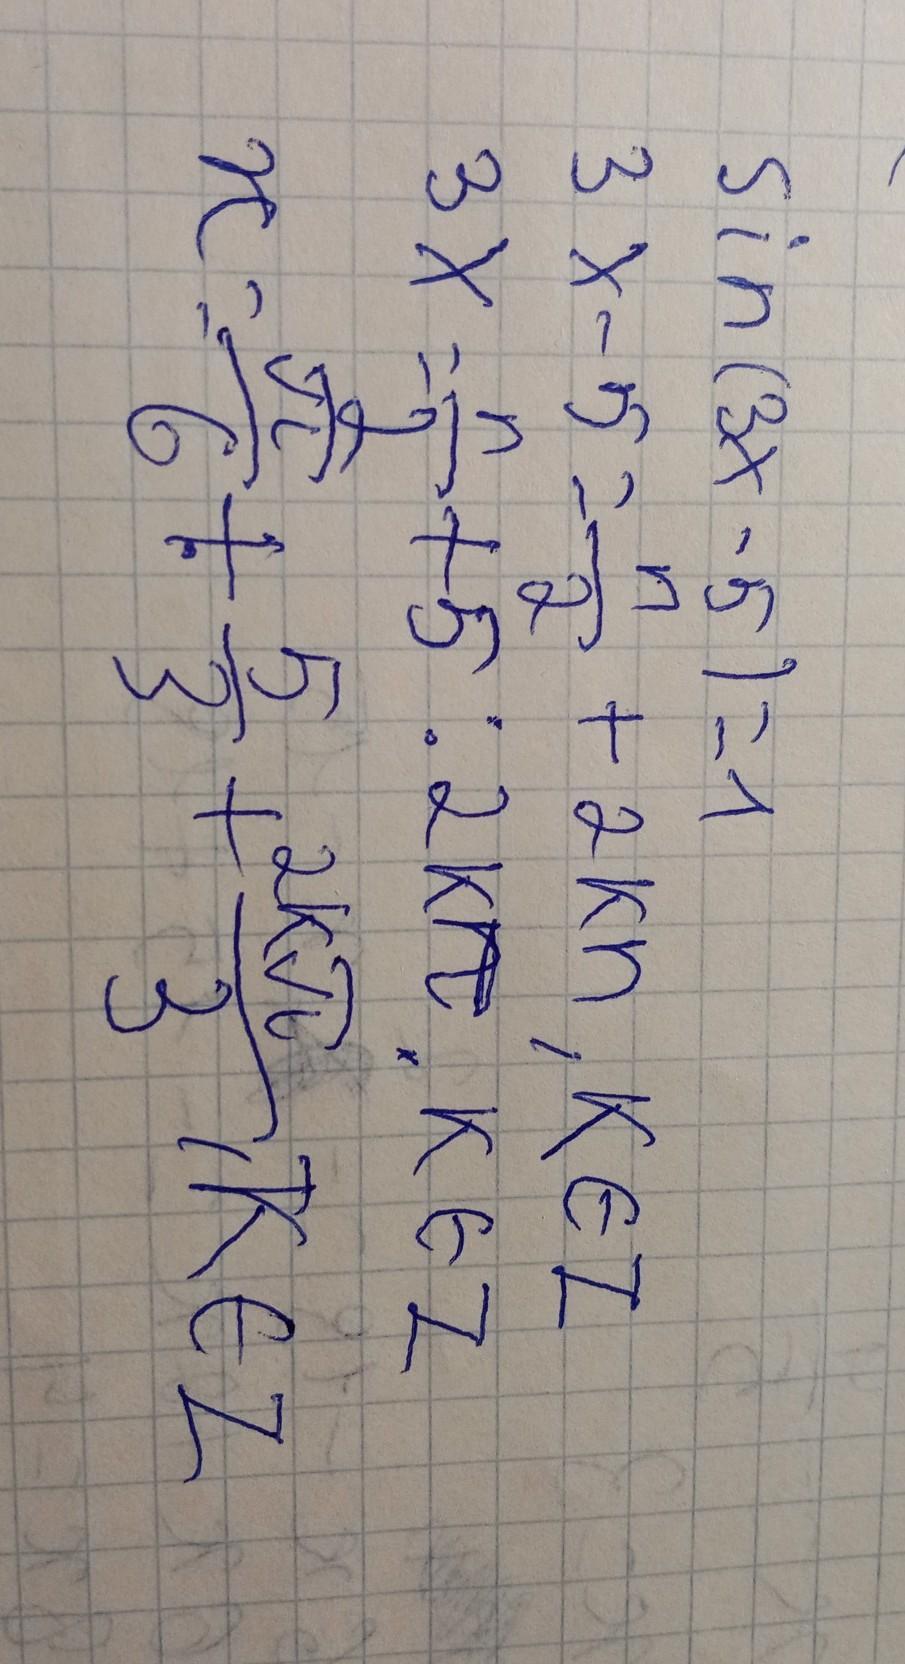 sin(3x-5)=1
3x-5=n/2+2kn, k∈Z
3x=n/2+5:2kπ, k∈Z
x=π/6+5/3+2kπ/3, k∈Z